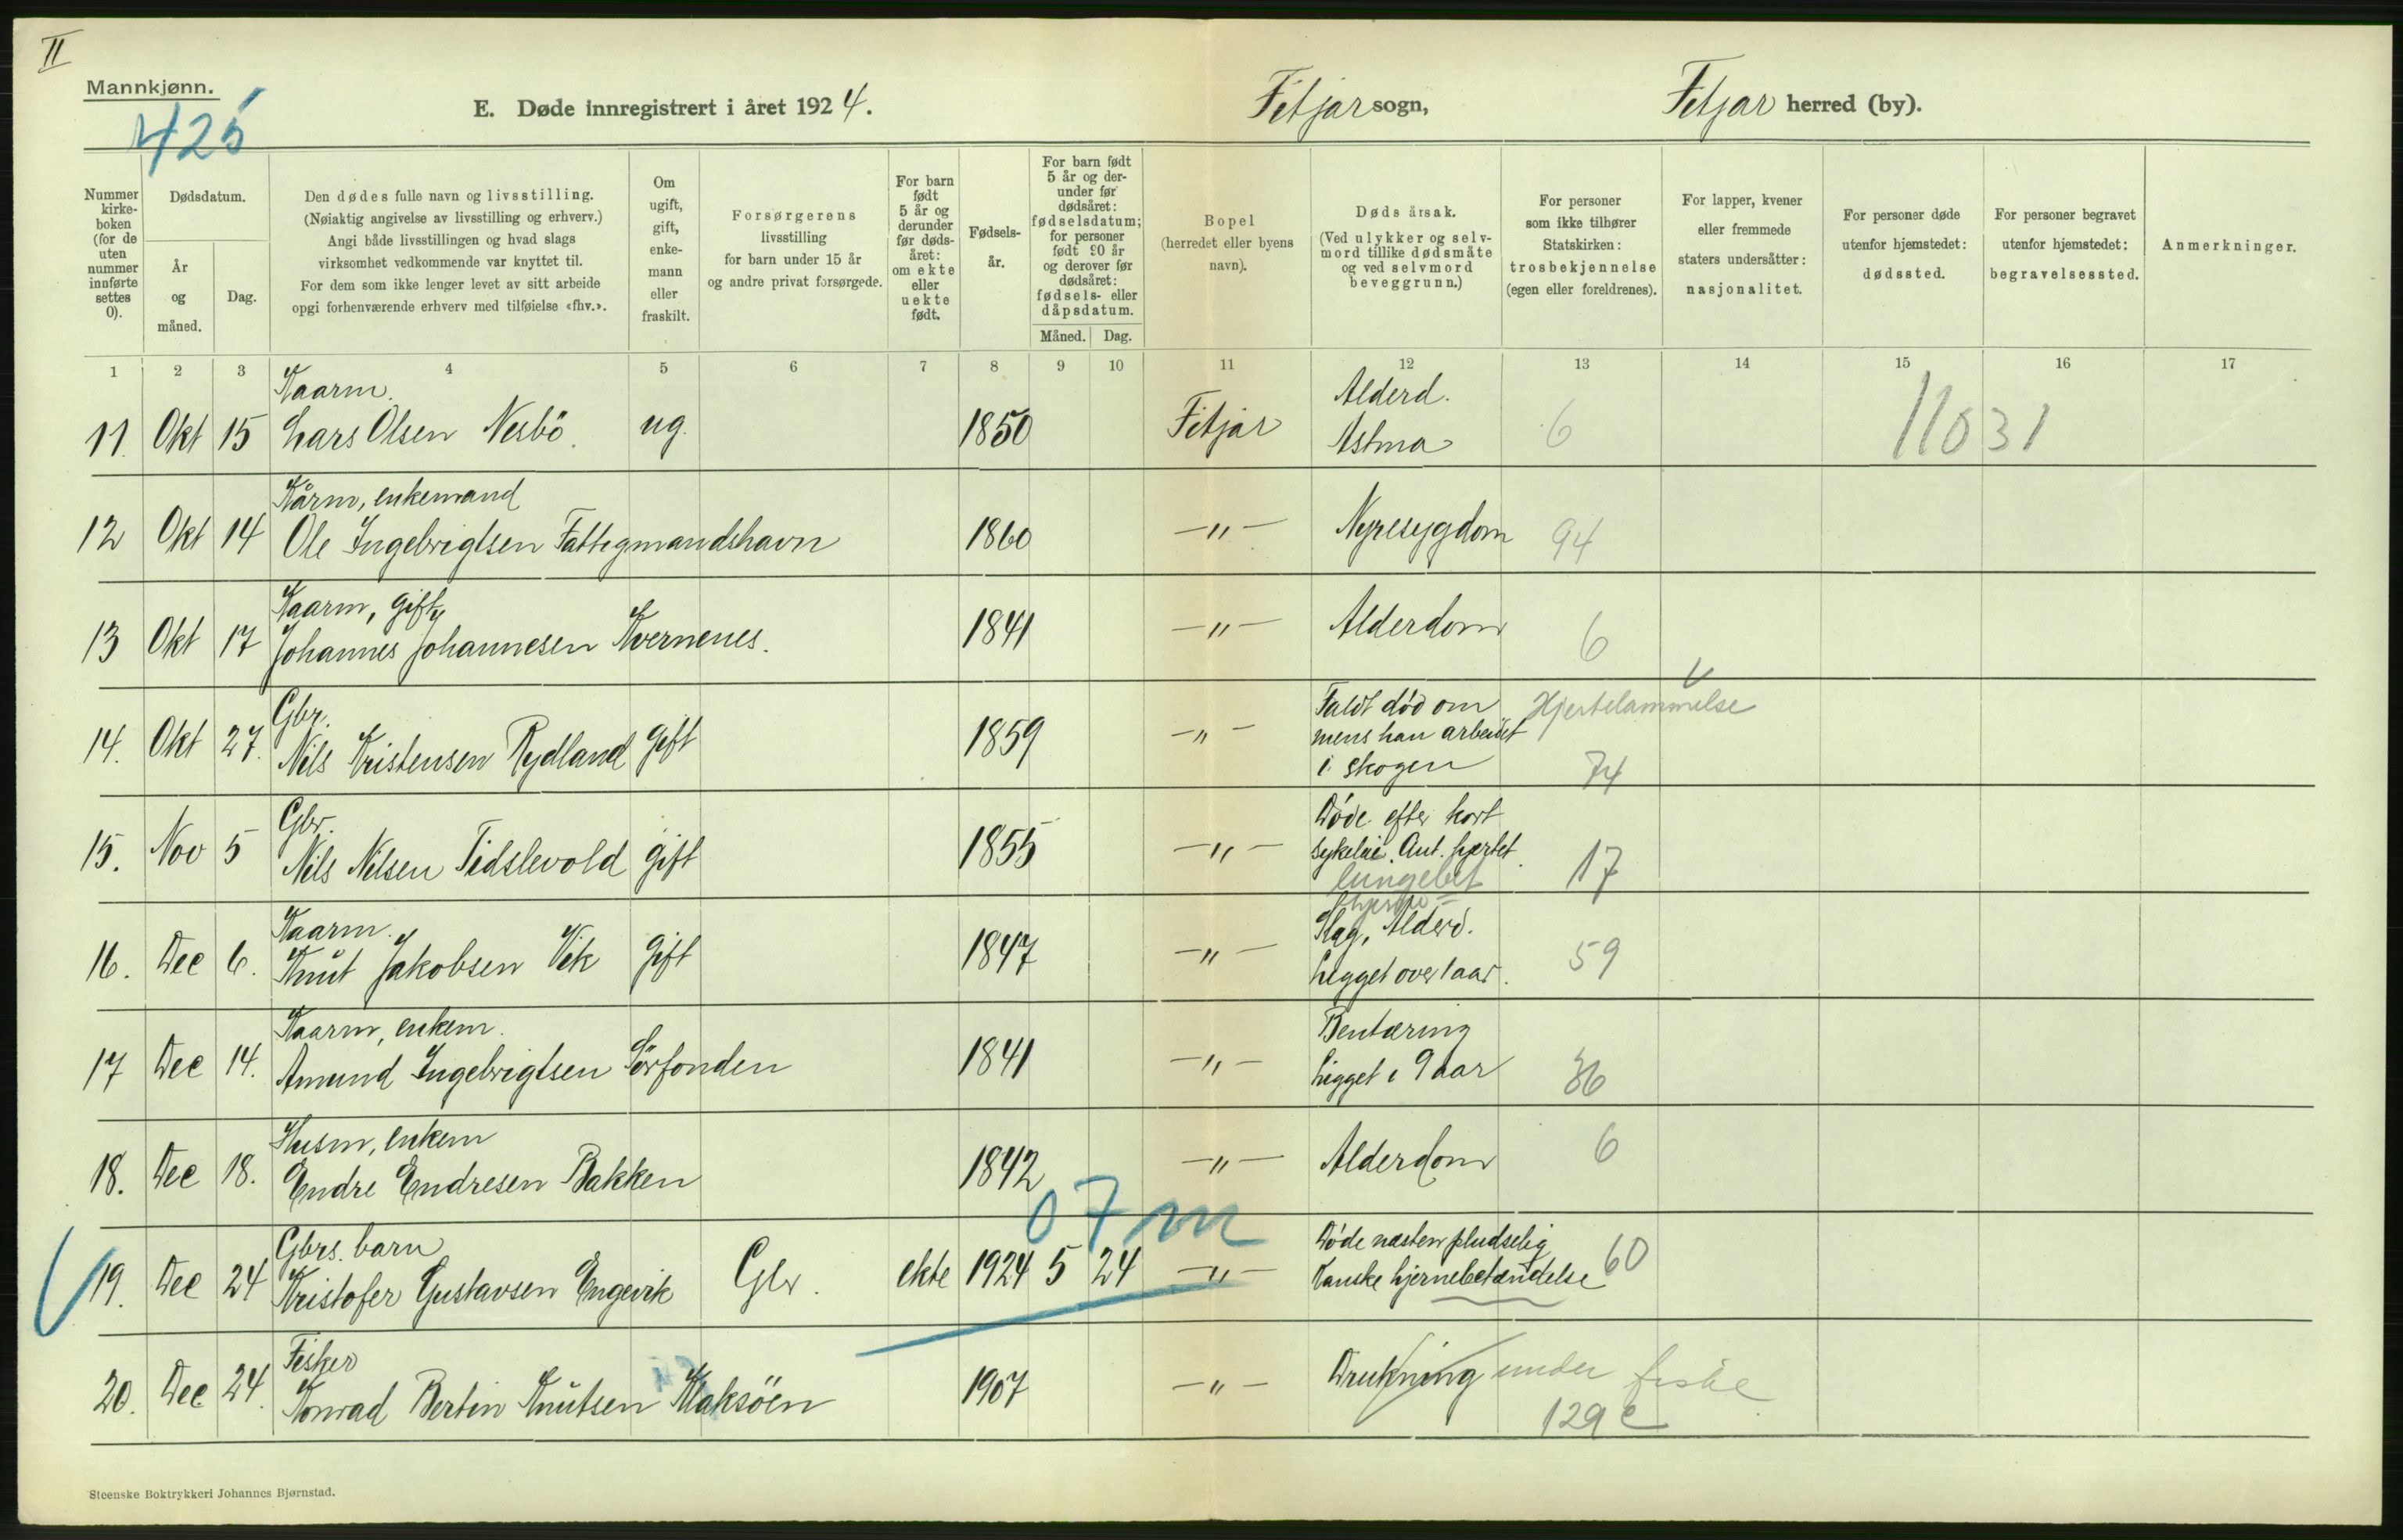 II
Mannkjønn.
425
E. Døde innregistrert i året 1924.
Fitjar sogn,
Fitjar herred (by).
Nummer kirke- boken (for de uten nummer innførte settes 0).
Dødsdatum.
År og måned.
Dag.
Den dødes fulle navn og livsstilling.
(Nøiaktig angivelse av livsstilling og erhverv.)
Angi både livsstillingen og hvad slags
virksomhet vedkommende var knyttet til.
For dem som ikke lenger levet av sitt arbeide
opgi forhenværende erhverv med tilføielse «fhv.».
Om ugift, gift, enke- mann eller fraskilt.
Forsørgerens
livsstilling
for barn under 15 år
og andre privat forsørgede.
For barn født 5 år og derunder før døds- året: om ekte eller uekte født.
Fødsels- år.
For barn født 5 år og der- under før dødsåret: fødselsdatum; for personer født 90 år og derover før dødsåret: fødsels- eller dåpsdatum.
Måned. Dag.
Bopel
(herredet eller byens
navn).
Døds årsak.
(Ved ulykker og selv-
mord tillike dødsmåte
og ved selvmord
beveggrunn.)
For personer
som ikke tilhører
Statskirken:
trosbekjennelse
(egen eller foreldrenes).
For lapper, kvener
eller fremmede
staters undersåtter:
nasjonalitet.
For personer døde
utenfor hjemstedet:
dødssted.
For personer begravet
utenfor hjemstedet:
begravelsessted.
Anmerkninger.
1 2 3 4 5 6 7 8 9 10 11 12 13 14 15 16 17
Kaarm. Alderd.
11. Okt 15 Lars Olsen Nesbö. ug. 1850 Fitjar Astma 6 11031
Kårm, enkemand
12 Okt 14 Ole Ingebrigtsen Fattigmandshavn 1860 -"- Nyresygdom 94
Kaarm, gift
13 Okt 17 Johannes Johannesen Kvernenes. 1841 -"- Alderdom 6
Gbr. Faldt död om Hjertelammelse
14. Okt 27. Nils Kristensen Rydland gift 1859 -"- mens han arbeidet
i skogen 74
Gbr. Döde efter kort
15. Nov 5 Nils Nilsen Tidslevold gift 1855 -"- sykelei. Ant. hjertet. 17
lungebet
Kaarm. Slag, Alderd.
16. Dec 6. Knut Jakobsen Vik gift 1847 -"- Ligget over 1 aar. 59
Kaarm, enkem. Bentæring
17 Dec 14. Amund Ingebrigtsen Sörfonden 1841 -"- Ligget i 9 aar 36
Husm, enkem
18. Dec 18. Endre Endresen Bakken 1842 -"- Alderdom 6
07m
Gbrs. barn Döde næsten pludselig
19. Dec 24 Kristofer Gustavsen Engevik Gbr. ekte 1924 5 24 -"- Kanske hjernebetændelse 60
Fisker
20. Dec 24. Konrad Bertin Knutsen Klaksöen 1907 -"- Drukning under fiske
129 c
Steenske Boktrykkeri Johannes Bjørnstad.